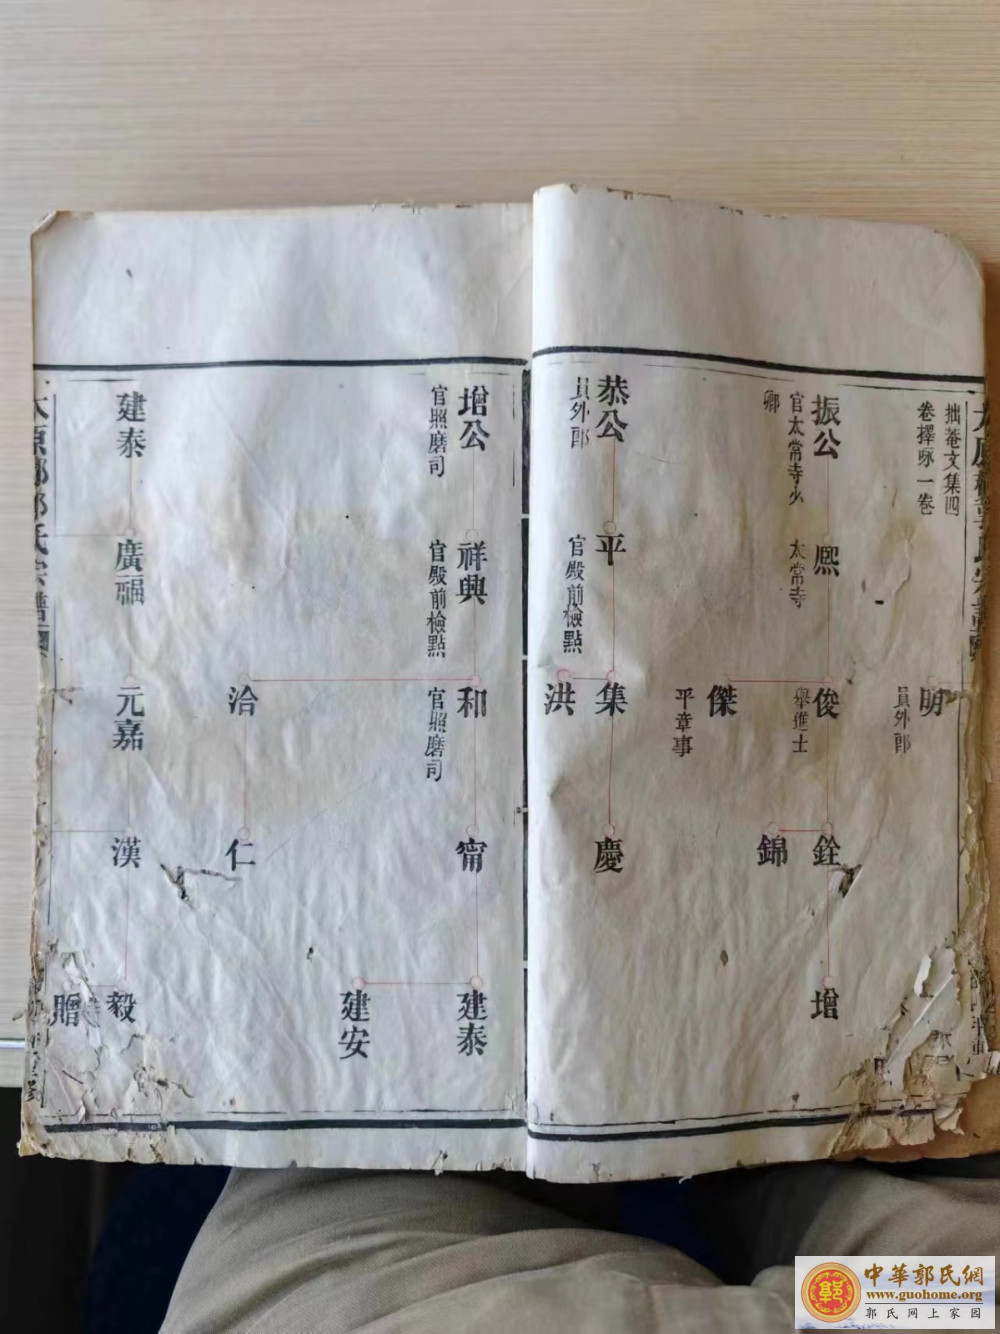 拙菴文集四
卷擇瑑一卷
明
員外郎
振公
官太常寺少
卿
熈
太常寺
俊
舉進士
傑
平章事
銓
錦
增
恭公
員外郎
平
官殿前檢點
集
洪
慶
增公
官照磨司
祥興
官殿前檢點
和
官照磨司
洽
甯
仁
建泰
建安
建泰
廣福
元嘉
漢
毅
贈
中華郭氏網
www.guohome.org
郭氏网上家园